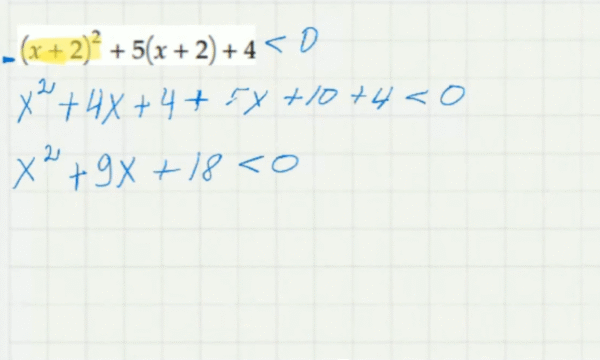 (x + 2)² + 5(x + 2) + 4 < 0
x² + 4x + 4 + 5x + 10 + 4 < 0
x² + 9x + 18 < 0